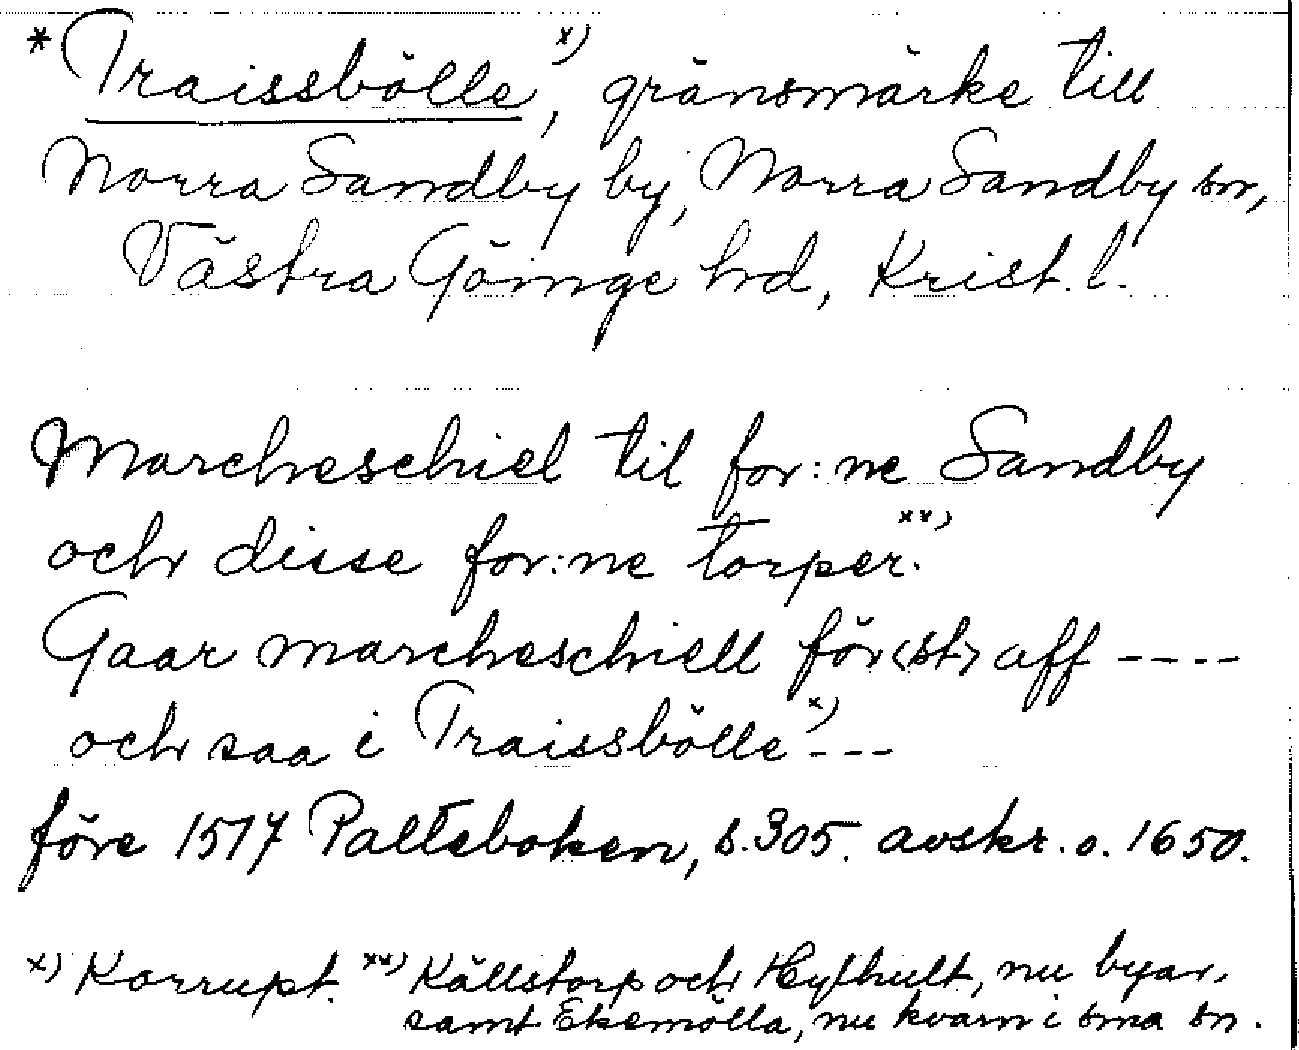 * Traissbölle x), gränsmärke till
Norra Sandby by, Norra Sandby sn,
Västra Göinge hd, Krist. l.
Marcheschiel til for:ne Sandby
och disse for:ne torper. xx)
Gaar marcheschiell för<st> aff ----
och saa i Traissbölle x) ---
före 1517 Palteboken, s. 305. avskr. o. 1650.
x) Korrupt. xx) Källstorp och Hylhult, nu byar,
samt Ekemölla, nu kvarn i sma sn.